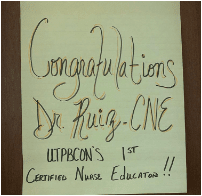 Congratulations
Dr. Ruiz-CNE
UTPBCON'S 1ST
CERTIFIED NURSE EDUCATOR!!